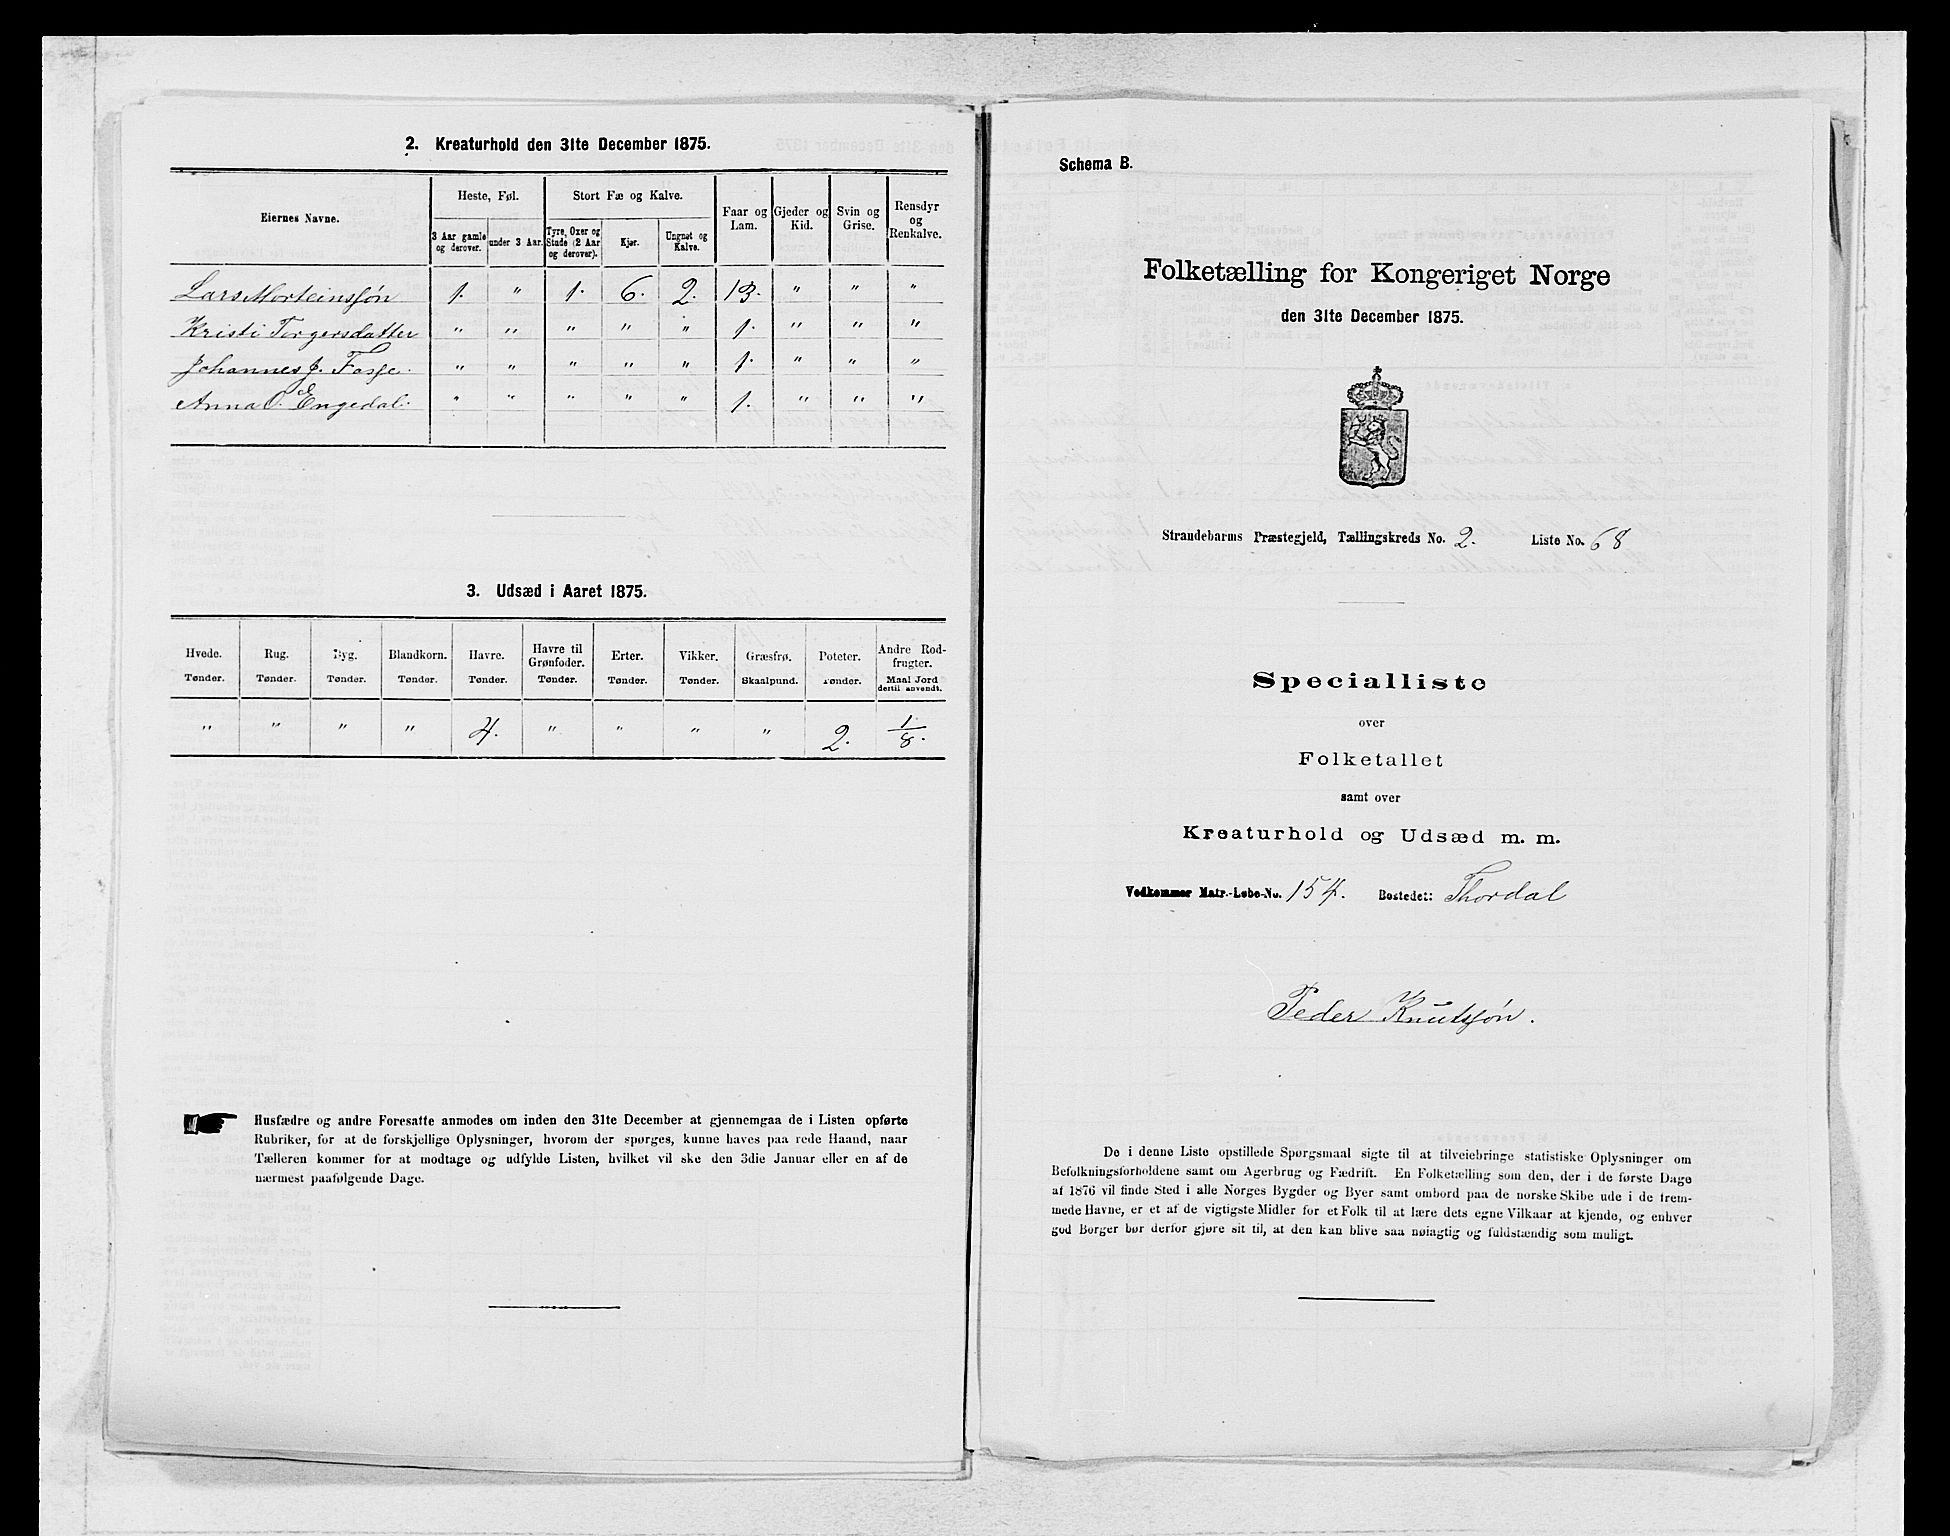 2. Kreaturhold den 31te December 1875.
Eiernes Navne.
Heste, Føl.
Stort Fæ og Kalve.
Faar og Lam.
Gjeder og Kid.
Svin og Grise.
Rensdyr og Renkalve.
3 Aar gamle og derover.
under 3 Aar.
Tyre, Oxer og Stude (2 Aar og derover).
Kjør.
Ungnøt og Kalve.
Lars Morteinssøn 1. " 1. 6. 2. 13. " " "
Kristi Torgersdatter " " " " " 1. " " "
Johannes J. Fosse. " " " " " 1. " " "
Anna O. Engedal. " " " " " 1. " " "
3. Udsæd i Aaret 1875.
Hvede. Rug. Byg. Blandkorn. Havre. Havre til Grønfoder. Erter. Vikker. Græsfrø. Poteter. Andre Rodfrugter.
Tønder. Tønder. Tønder. Tønder. Tønder. Tønder. Tønder. Tønder. Skaalpund. Tønder. Maal Jord dertil anvendt.
" " " " 4. " " " " 2. 1/8.
Husfædre og andre Foresatte anmodes om inden den 31te December at gjennemgaa de i Listen opførte
Rubriker, for at de forskjellige Oplysninger, hvorom der spørges, kunne haves paa rede Haand, naar
Tælleren kommer for at modtage og udfylde Listen, hvilket vil ske den 3die Januar eller en af de
nærmest paafølgende Dage.
Schema B.
Folketælling for Kongeriget Norge
den 31te December 1875.
Strandebarms Præstegjeld, Tællingskreds No. 2. Liste No. 68
Specialliste
over
Folketallet
samt over
Kreaturhold og Udsæd m. m.
Vedkommer Matr.-Løbe-No. 154. Bostedet: Thordal
Peder Knutssøn.
De i denne Liste opstillede Spørgsmaal sigte til at tilveiebringe statistiske Oplysninger om
Befolkningsforholdene samt om Agerbrug og Fædrift. En Folketælling som den, der i de første Dage
af 1876 vil finde Sted i alle Norges Bygder og Byer samt ombord paa de norske Skibe ude i de frem-
mede Havne, er et af de vigtigste Midler for et Folk til at lære dets egne Vilkaar at kjende, og enhver
god Borger bør derfor gjøre sit til, at den kan blive saa nøiagtig og fuldstændig som muligt.